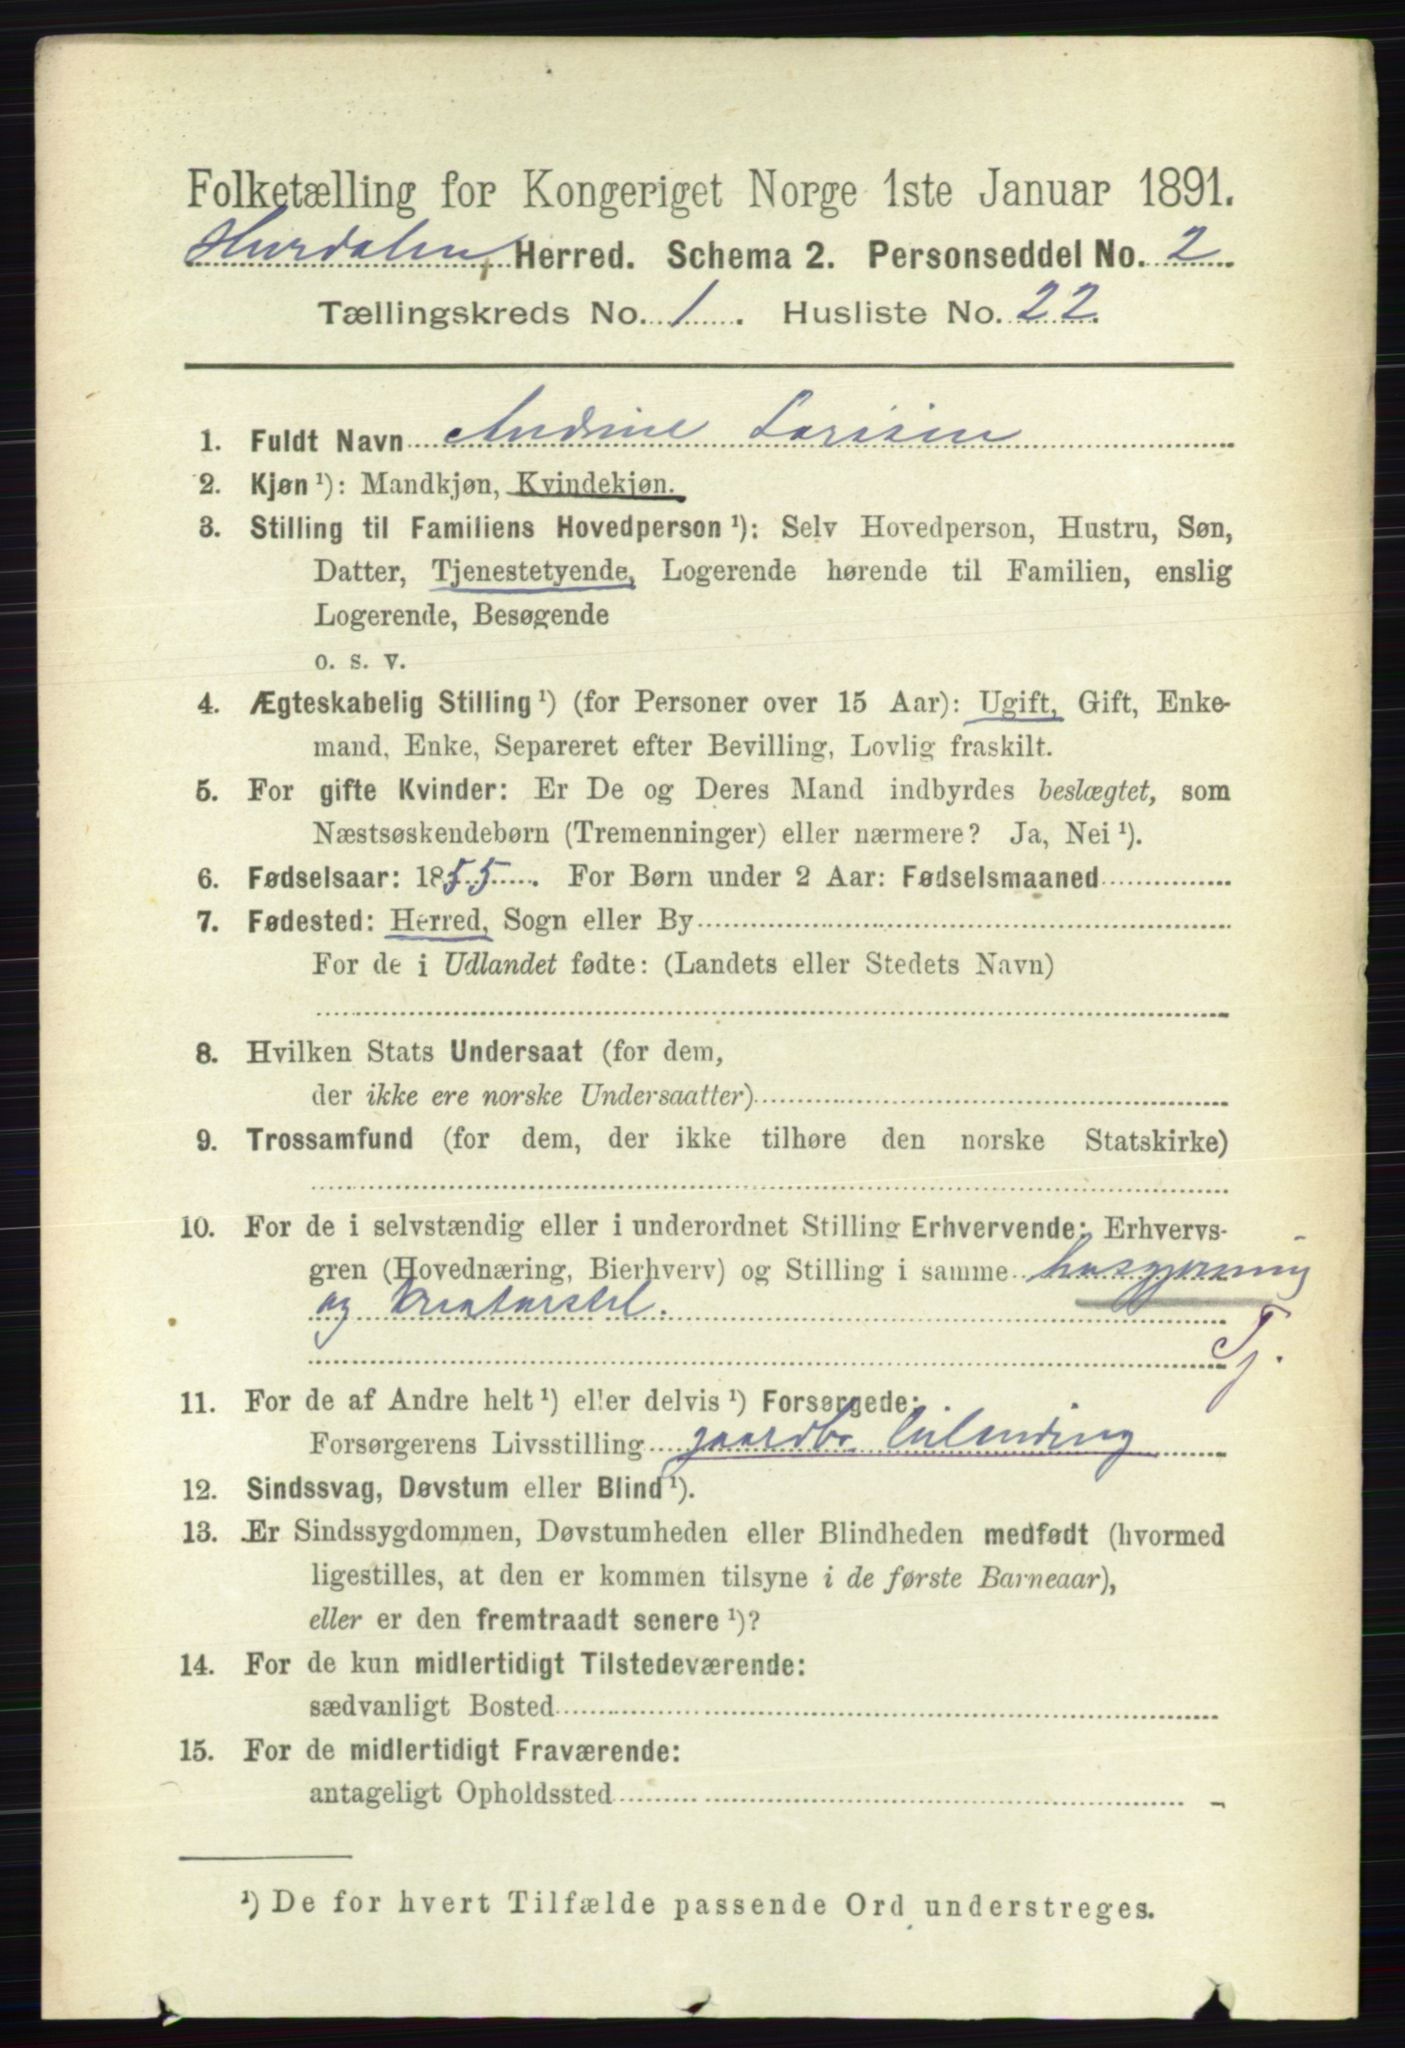 Folketælling for Kongeriget Norge 1ste Januar 1891.
Hurdalen Herred. Schema 2. Personseddel No. 2
Tællingskreds No. 1. Husliste No. 22.
1. Fuldt Navn Andrine Larssen
2. Kjøn ¹): Mandkjøn, Kvindekjøn.
3. Stilling til Familiens Hovedperson ¹): Selv Hovedperson, Hustru, Søn,
Datter, Tjenestetyende, Logerende hørende til Familien, enslig
Logerende, Besøgende
o. s. v.
4. Ægteskabelig Stilling ¹) (for Personer over 15 Aar): Ugift, Gift, Enke-
mand, Enke, Separeret efter Bevilling, Lovlig fraskilt.
5. For gifte Kvinder: Er De og Deres Mand indbyrdes beslægtet, som
Næstsøskendebørn (Tremenninger) eller nærmere? Ja, Nei ¹).
6. Fødselsaar: 1855. For Børn under 2 Aar: Fødselsmaaned
7. Fødested: Herred, Sogn eller By
For de i Udlandet fødte: (Landets eller Stedets Navn)
8. Hvilken Stats Undersaat (for dem,
der ikke ere norske Undersaatter)
9. Trossamfund (for dem, der ikke tilhøre den norske Statskirke)
10. For de i selvstændig eller i underordnet Stilling Erhvervende: Erhvervs-
gren (Hovednæring, Bierhverv) og Stilling i samme husgjerning
og Kreaturstel.
Tj.
11. For de af Andre helt ¹) eller delvis ¹) Forsørgede:
Forsørgerens Livsstilling gaardbr.
12. Sindssvag, Døvstum eller Blind ¹).
13. Er Sindssygdommen, Døvstumheden eller Blindheden medfødt (hvormed
ligestilles, at den er kommen tilsyne i de første Barneaar),
eller er den fremtraadt senere ¹)?
14. For de kun midlertidigt Tilstedeværende:
sædvanligt Bosted
15. For de midlertidigt Fraværende:
antageligt Opholdssted
¹) De for hvert Tilfælde passende Ord understreges.